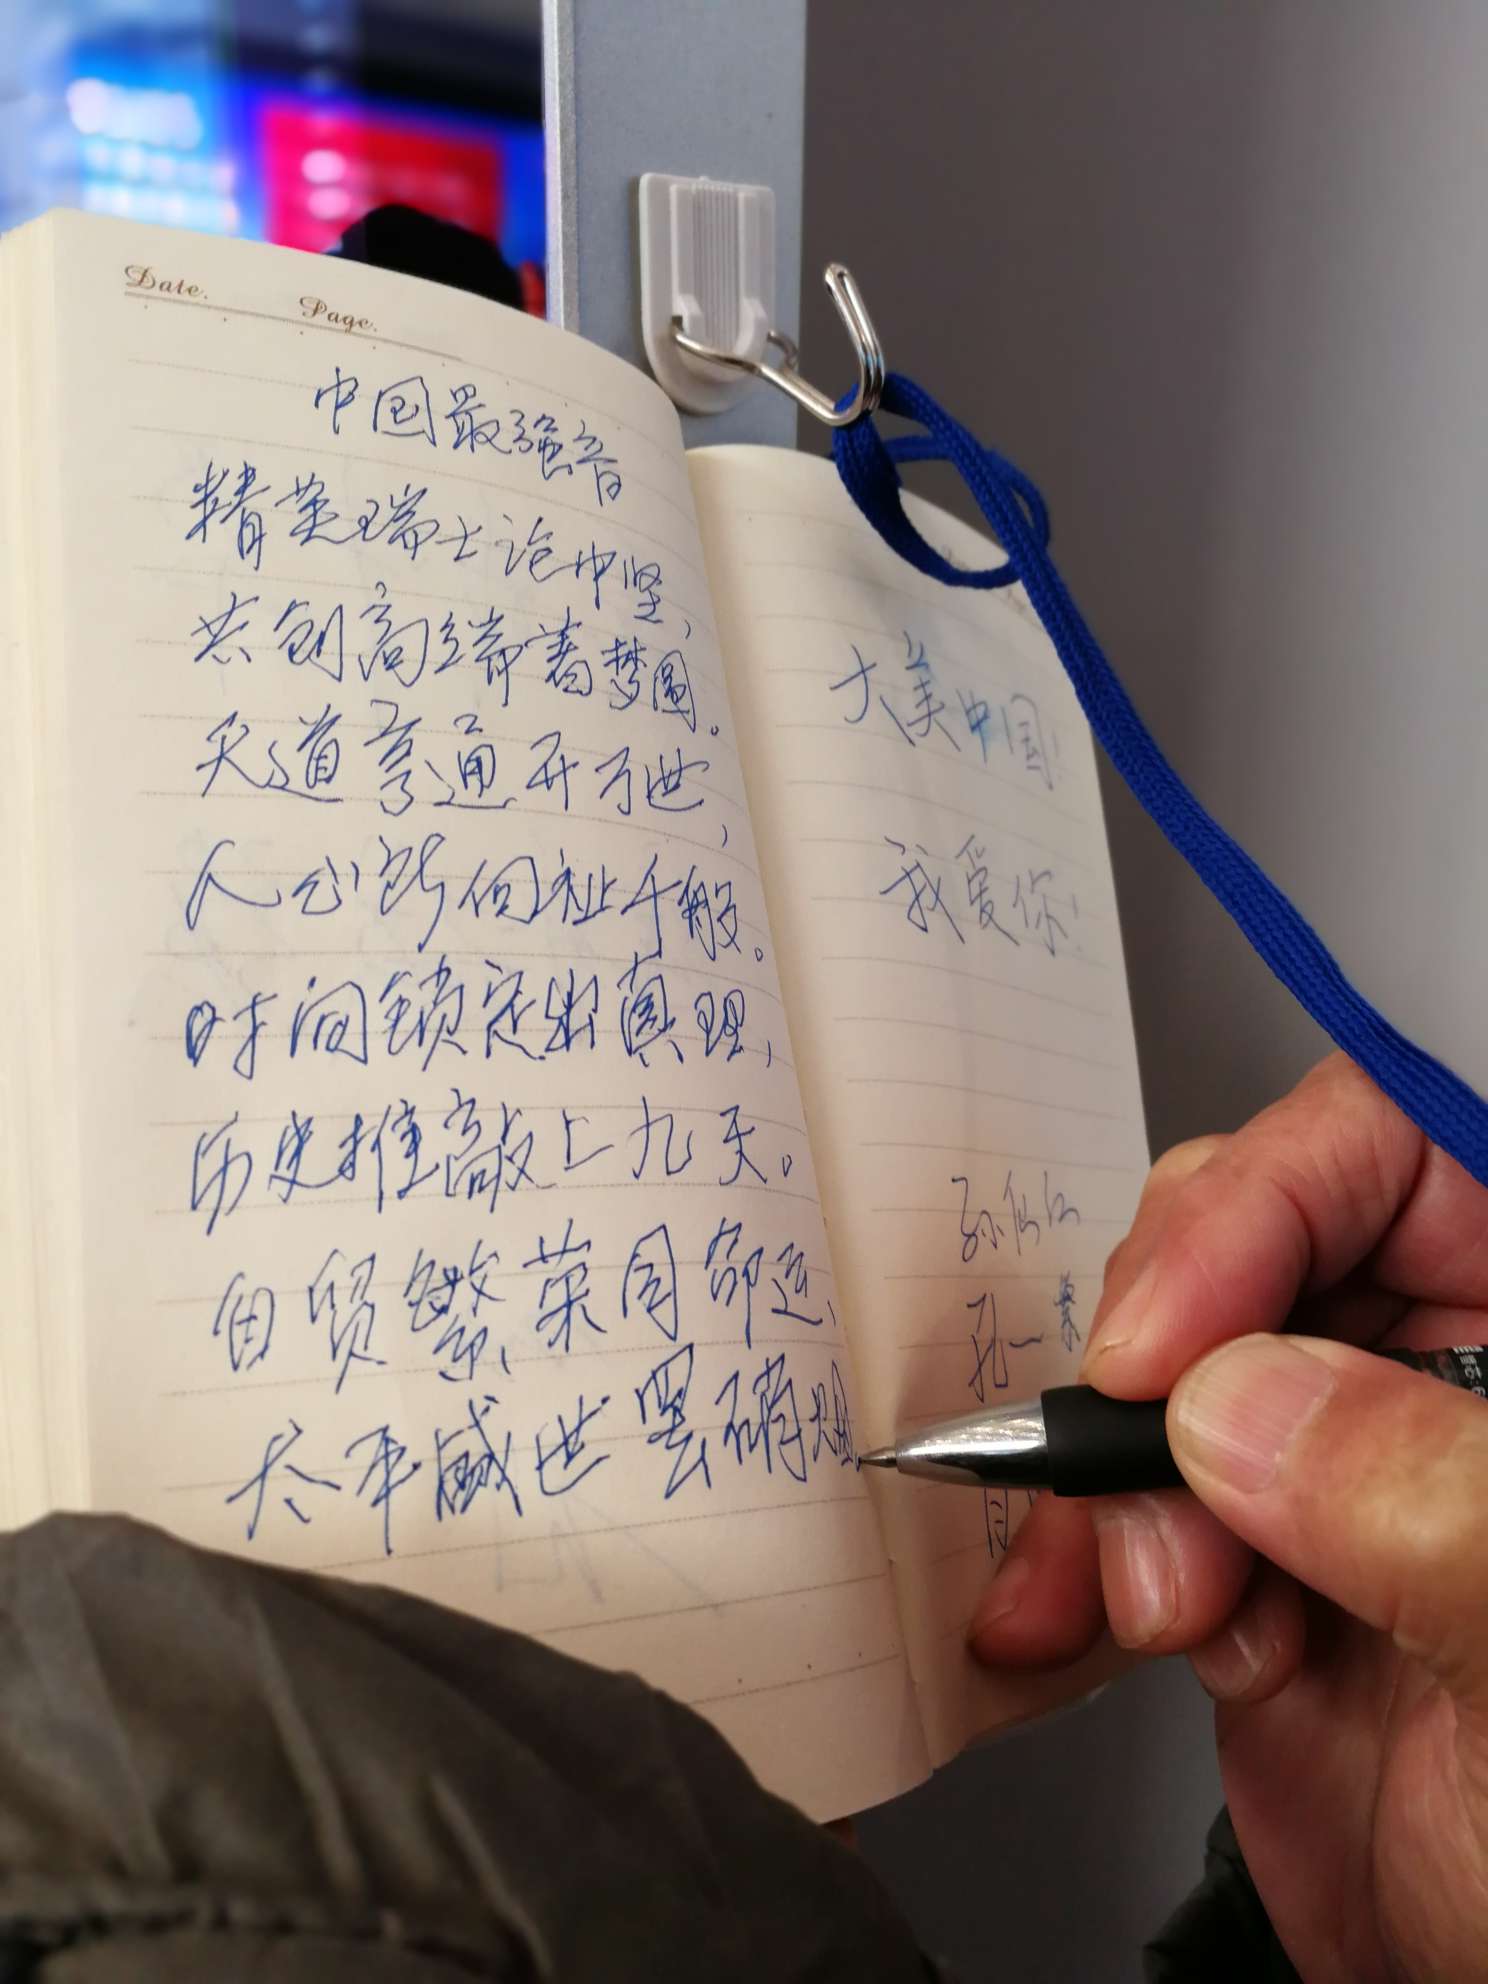 Date.
Page.
中国最强音
精英瑞士论中坚,
共创高端著梦圆。
天道亨通开万世,
人心所向祉千般。
时间锁定出真理,
历史推敲上九天。
自贸繁荣同命运,
太平盛世罢硝烟
大美中国!
我爱你!
孙仙江
孔一
月